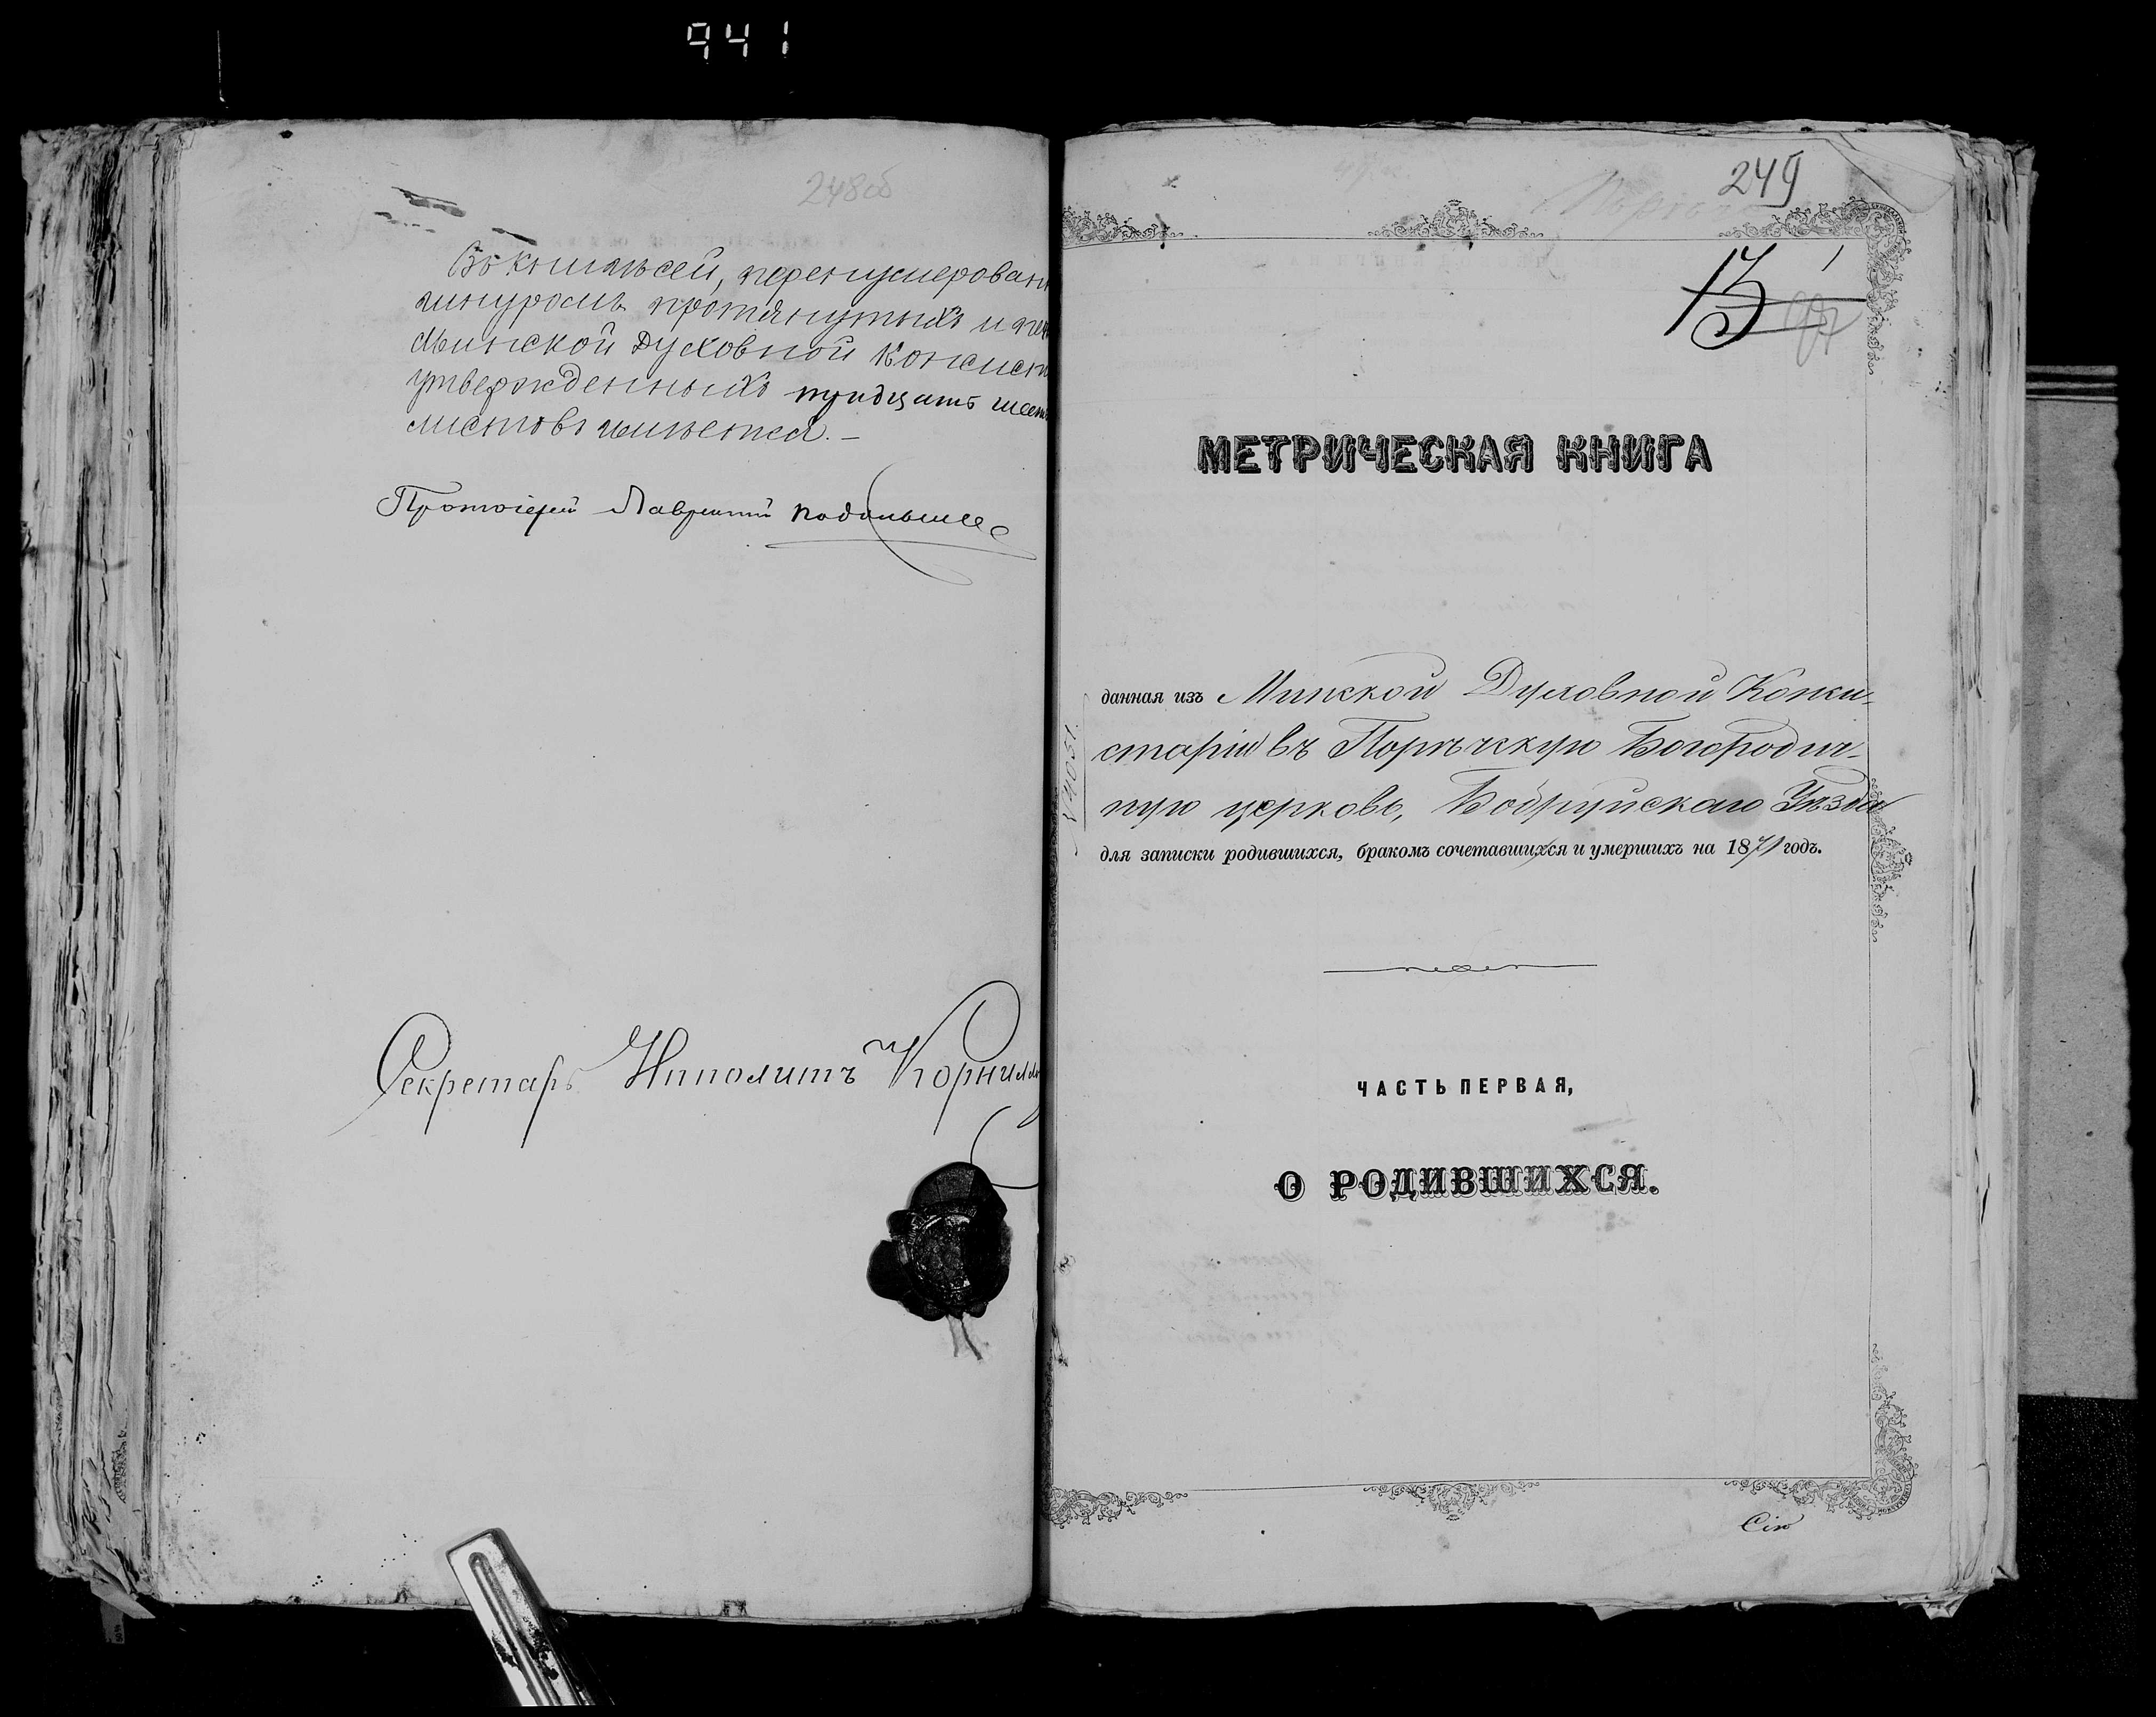 941
248об
Въ книгѣ сей, перенумерован
шнуромъ протянутыхъ и пе
Минской Духовной Консист
утвержденныхъ тридцать шесть
листовъ имѣется.–
Протоіерей Лаврентій
Секретарь Ипполитъ Корнил
249
13 1
МЕТРИЧЕСКАЯ КНИГА
данная изъ Минской Духовной Конси-
сторіи въ Порѣчскую Богородич-
ную церковь, Бобруйскаго Уѣзда
для записки родившихся, бракомъ сочетавшихся и умершихъ на 1871 годъ.
№ 4051.
ЧАСТЬ ПЕРВАЯ,
О РОДИВШИХСЯ.